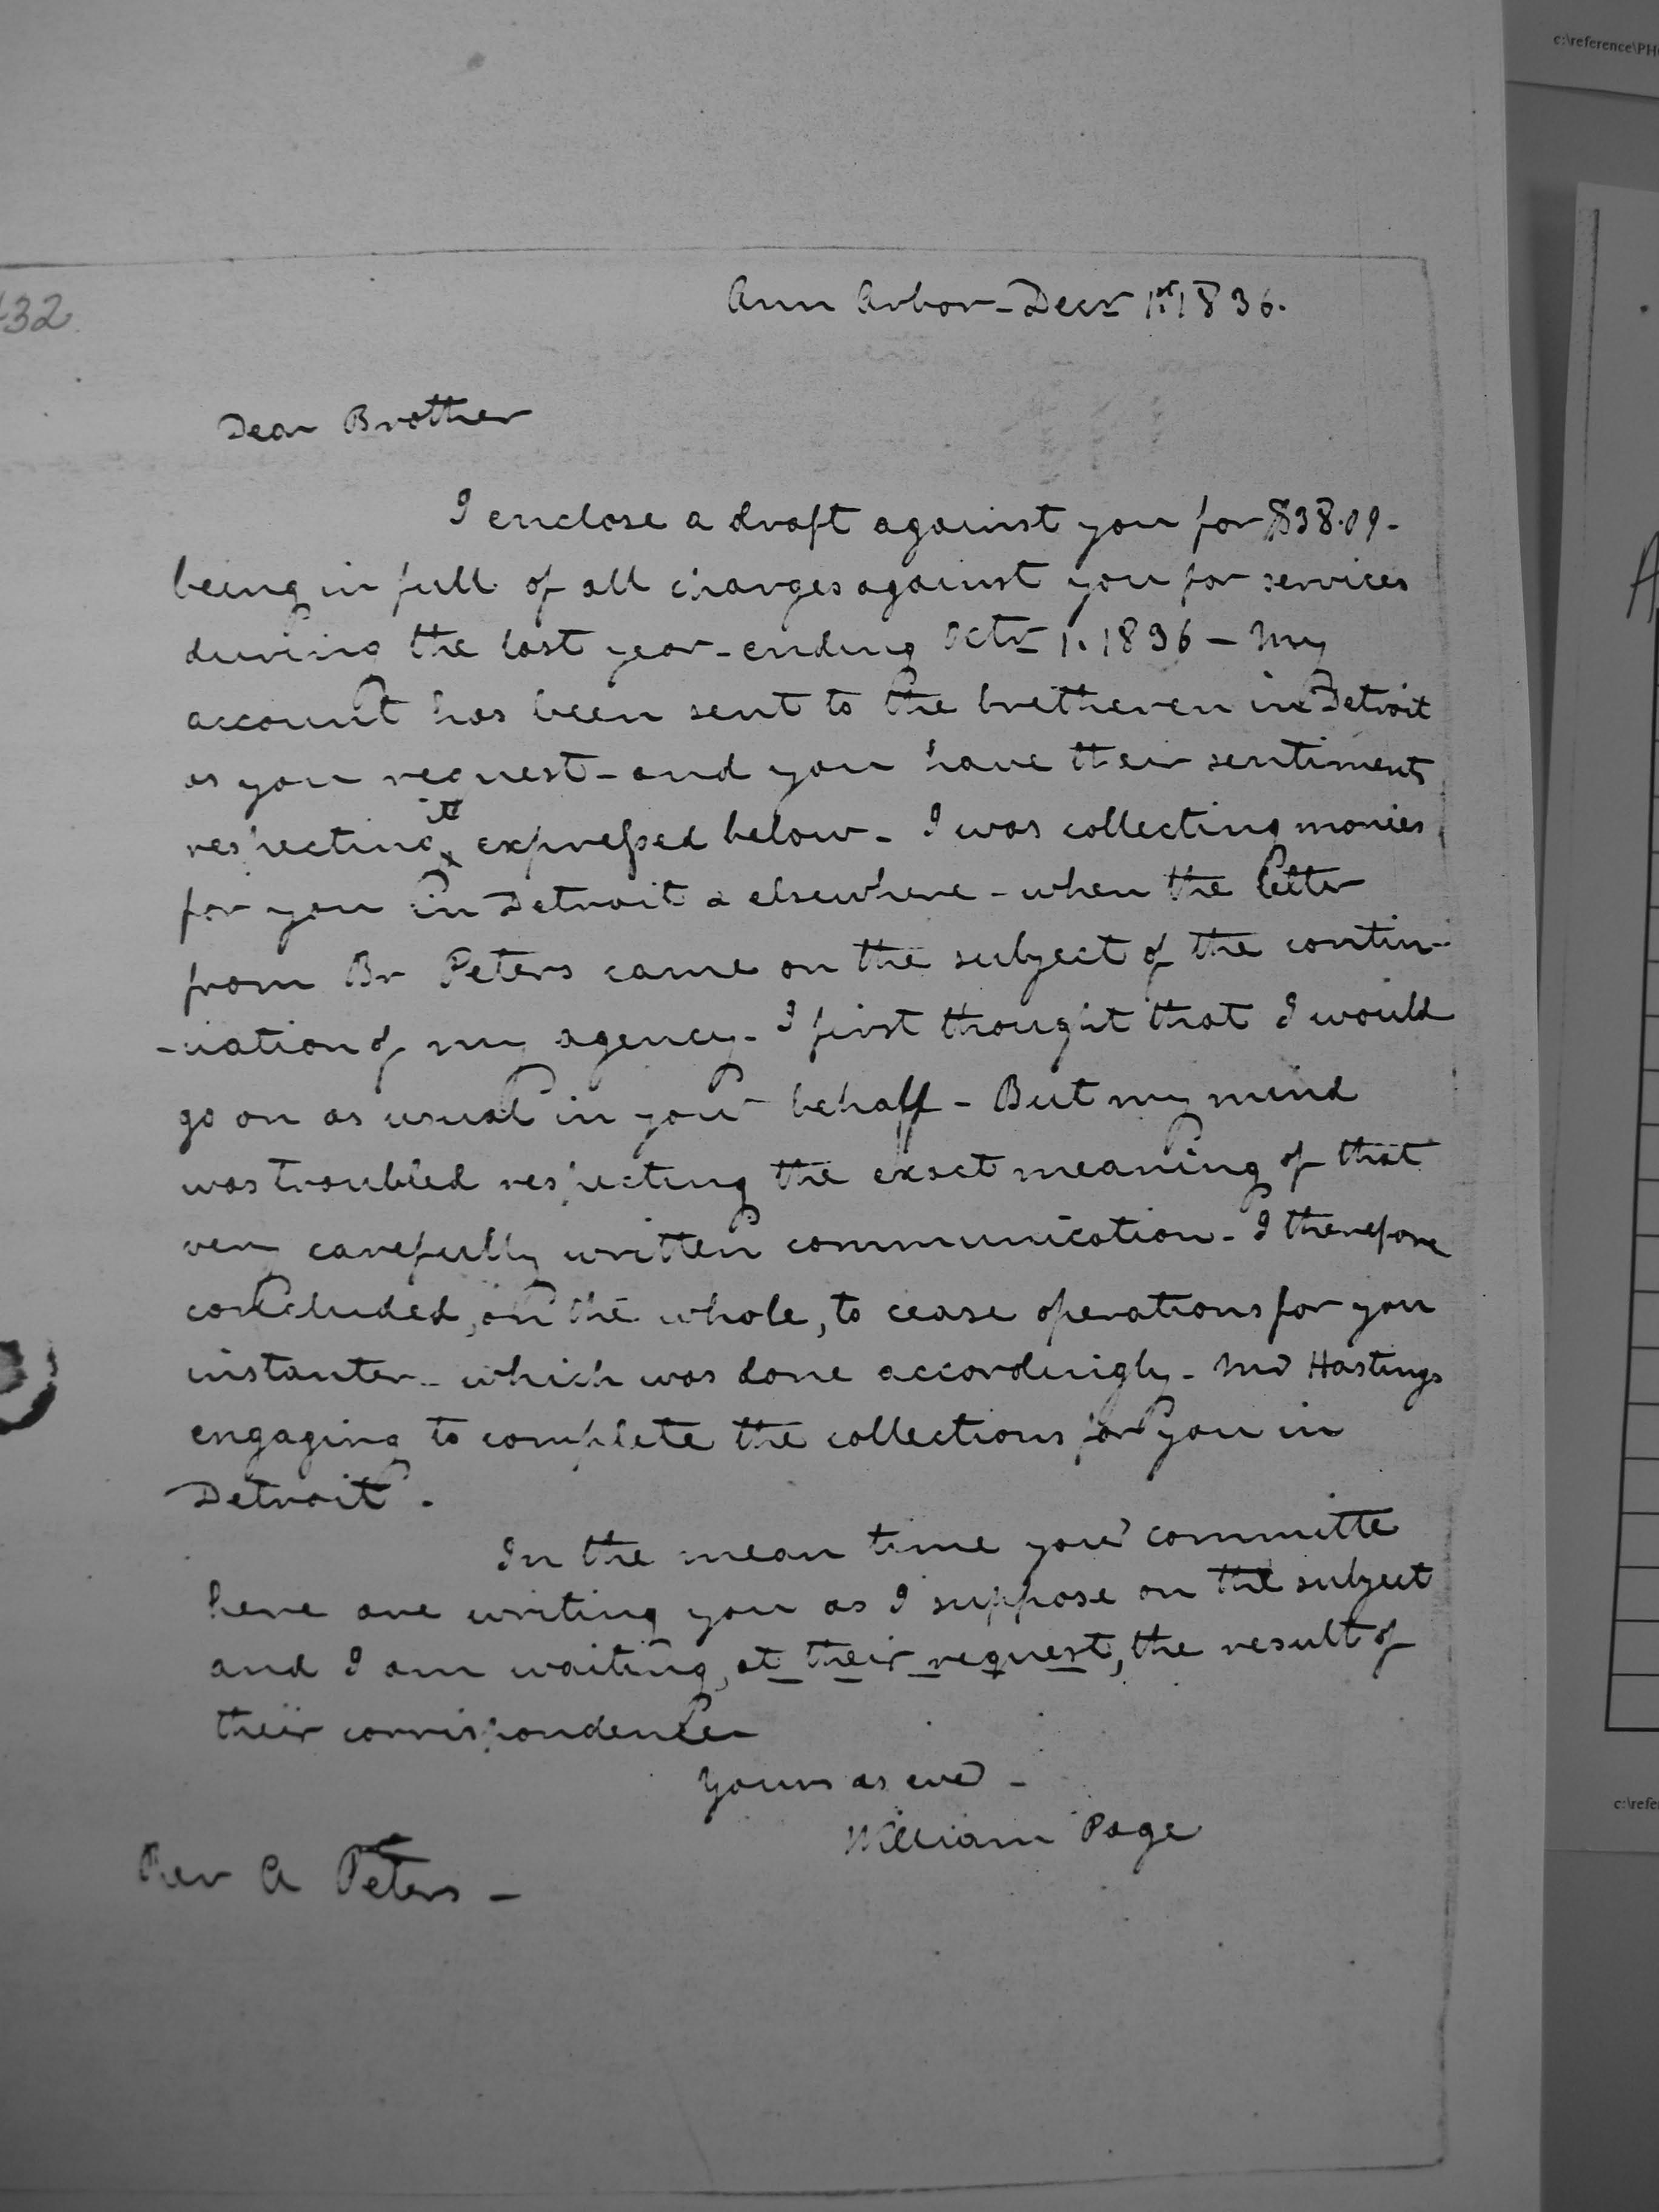 c:\reference\PH
432
Ann Arbor - Decr 1st 1836.
Dear Brother
I enclose a draft against you for $38.09 -
being in full of all charges against you for services
during the last year - ending Octr 1. 1836 - My
account has been sent to the bretheren in Detroit
as you request - and you have their sentiments
respecting it expressed below - I was collecting monies
for you in Detroit & elsewhere - when the letter
from Br Peters came on the subject of the contin-
-uation of my agency - I first thought that I would
go on as usual in your behalf - But my mind
was troubled respecting the exact meaning of that
very carefully written communication - I therefore
concluded, on the whole, to cease operations for you
instanter - which was done accordingly - Mr Hastings
engaging to complete the collections for you in
Detroit.
In the mean time your committe
here are writing you as I suppose on the subject
and I am waiting, at their request, the result of
their corrispondence
Yours as ever -
William Page
Rev A Peters -
c:\refe